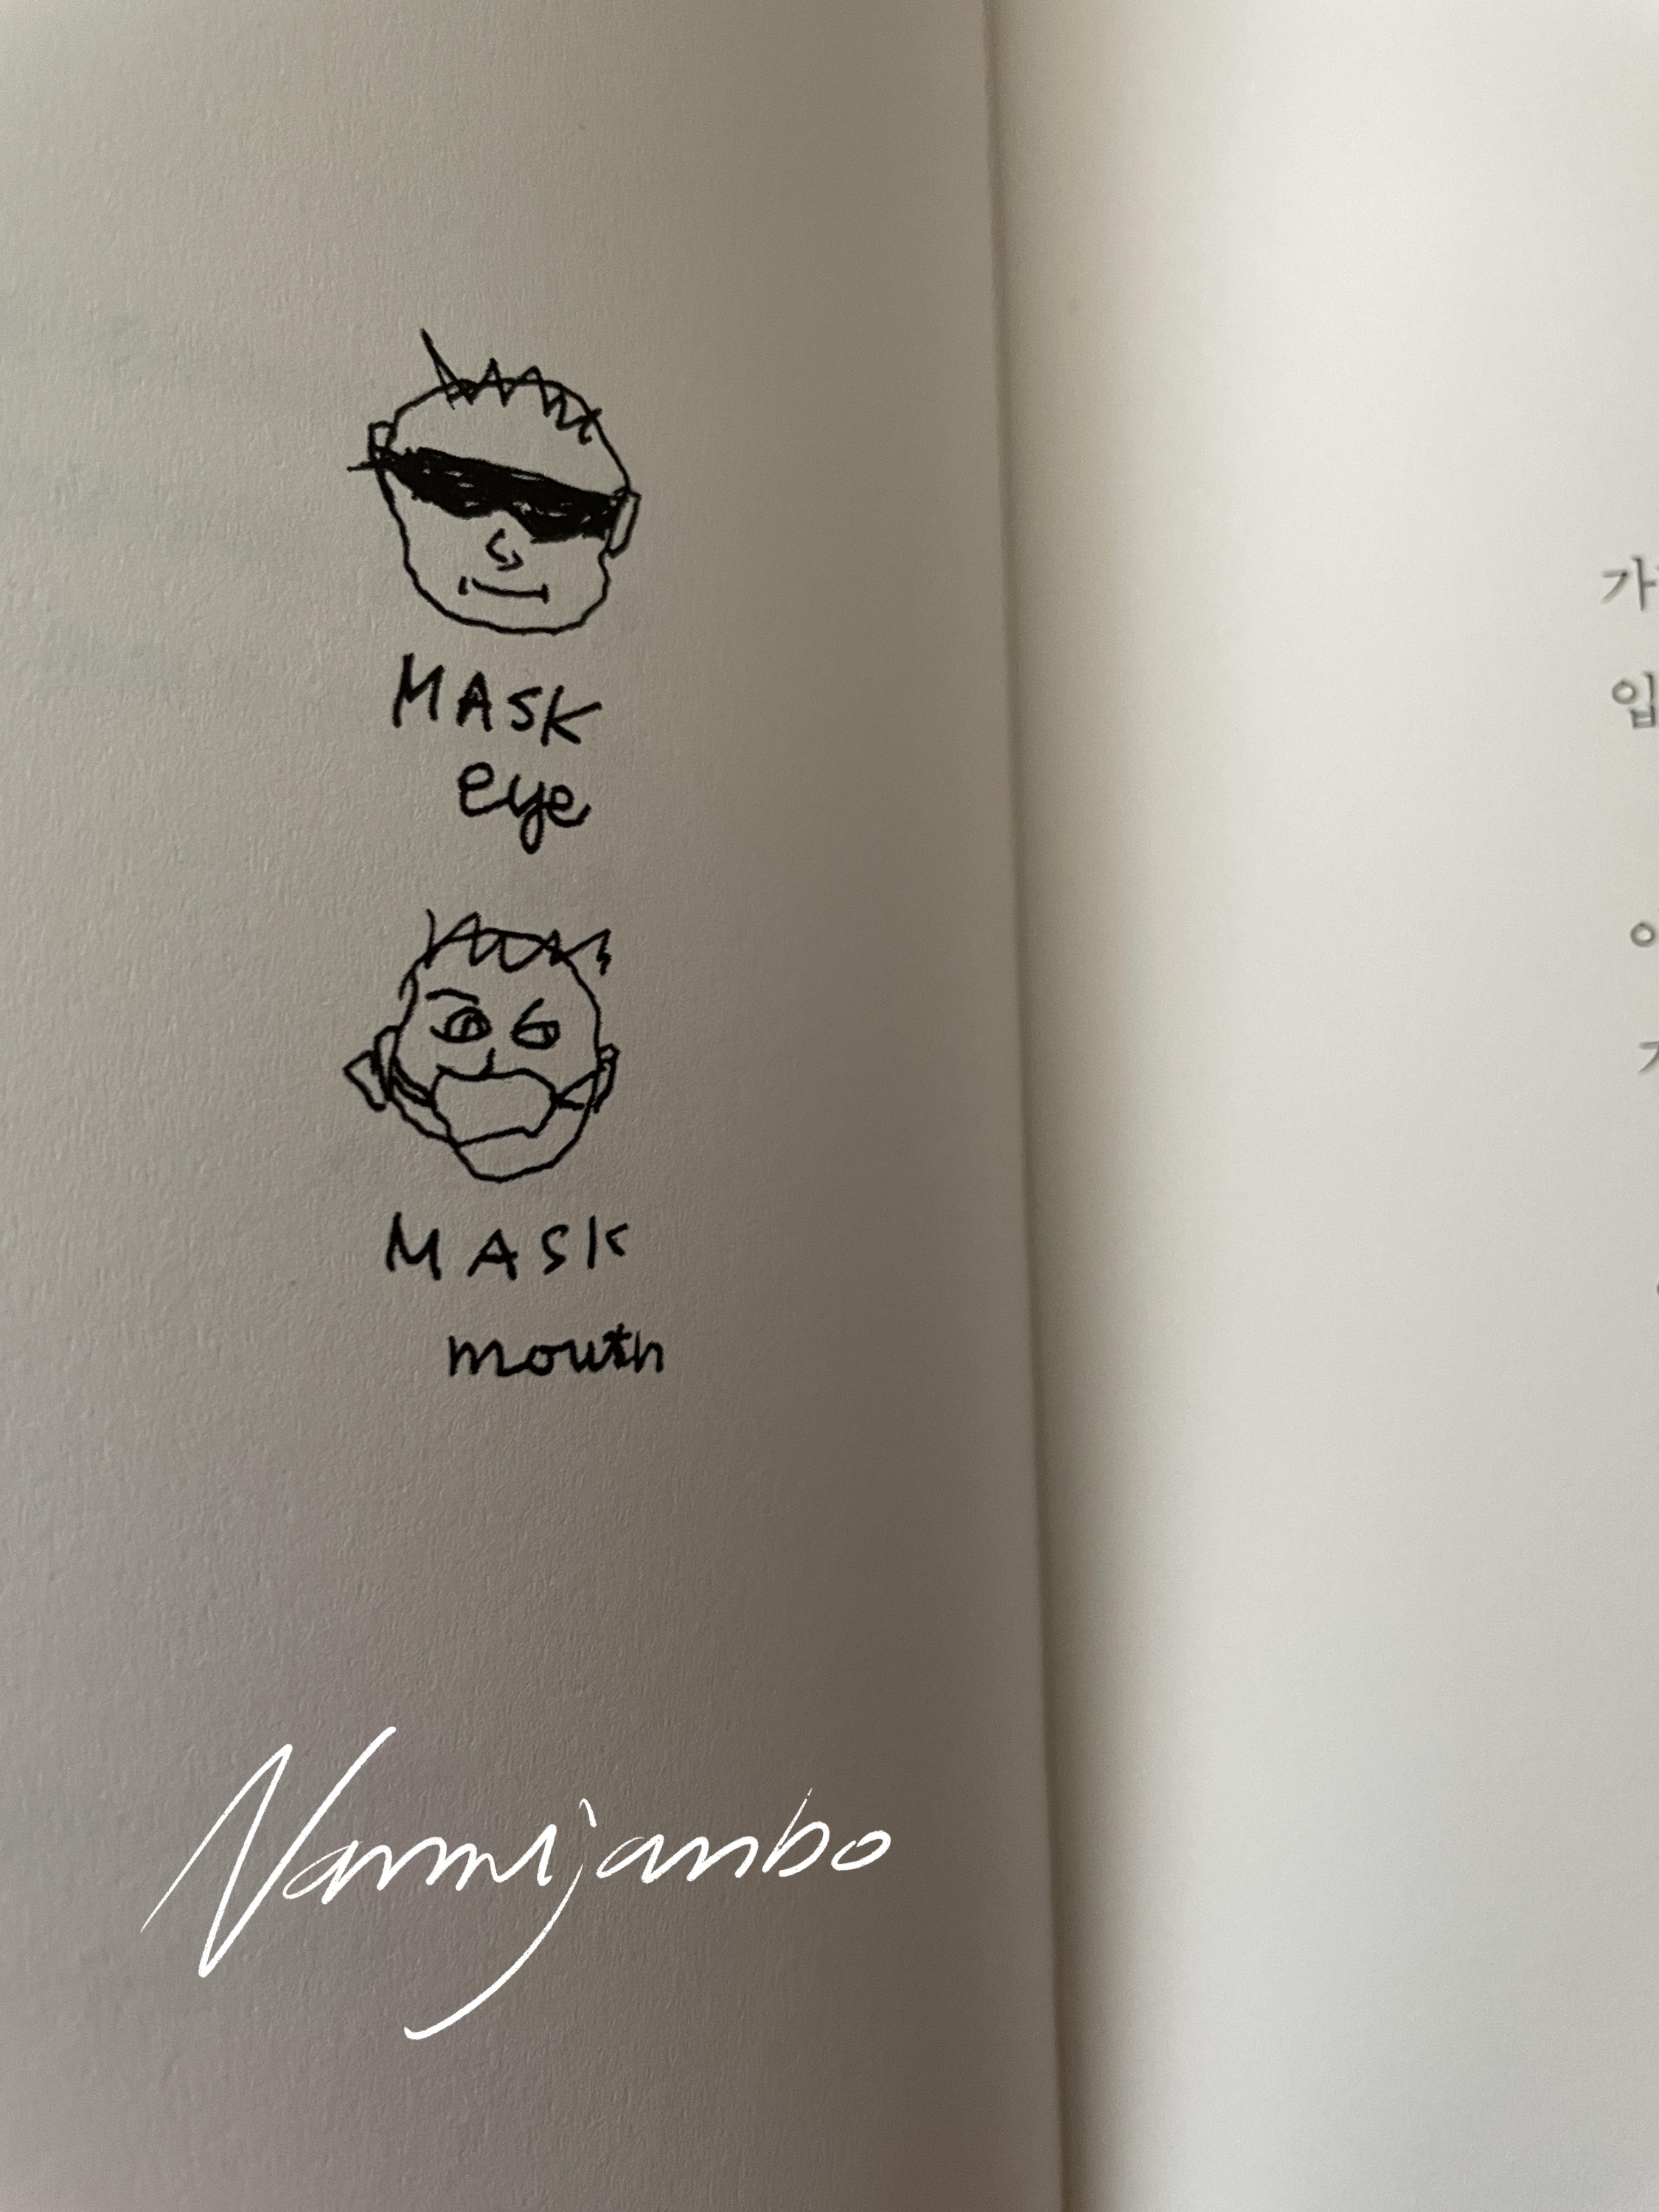 MASK
eye
MASK
mouth
Nammijanbo
가
입